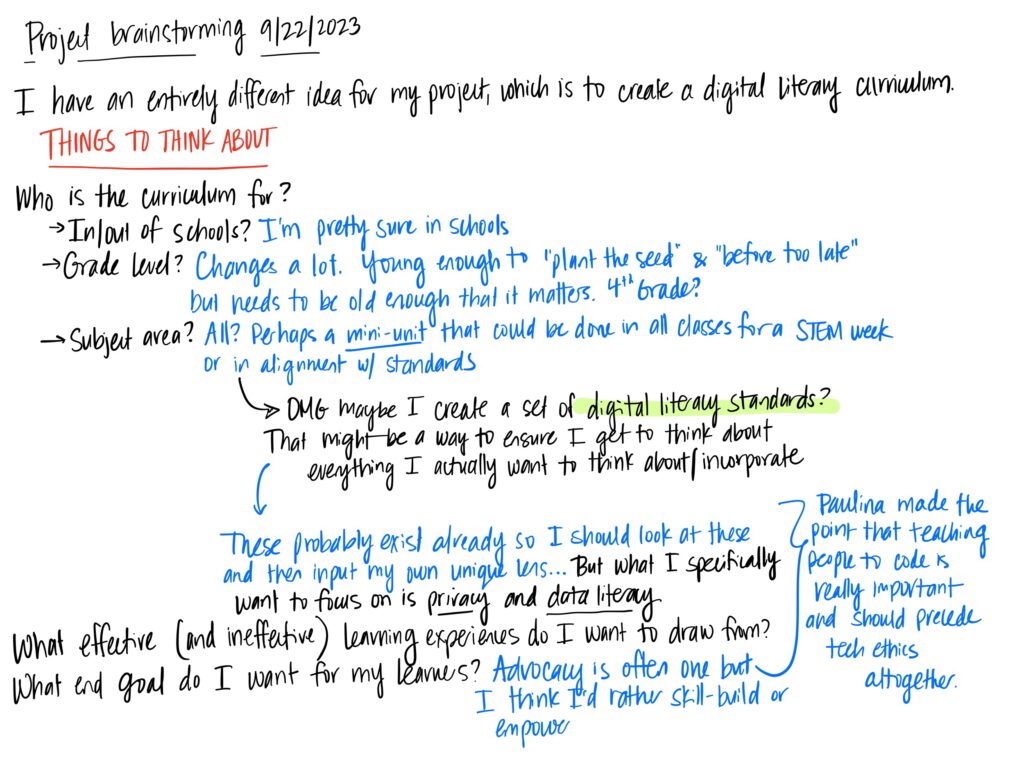 Project brainstorming 9/22/2023
I have an entirely different idea for my project, which is to create a digital literacy curriculum.
THINGS TO THINK ABOUT
Who is the curriculum for?
→ In/out of schools? I'm pretty sure in schools
→ Grade level? Changes a lot. Young enough to "plant the seed" & "before too late"
but needs to be old enough that it matters. 4th Grade?
→ Subject area? All? Perhaps a mini-unit that could be done in all classes for a STEM week
or in alignment w/ standards
OMG maybe I create a set of digital literacy standards?
That might be a way to ensure I get to think about
everything I actually want to think about/incorporate
These probably exist already so I should look at these
and then input my own unique lens... But what I specifically
want to focus on is privacy and data literacy
What effective (and ineffective) learning experiences do I want to draw from?
What end goal do I want for my learners? Advocacy is often one but
I think I'd rather skill-build or
empower
Paulina made the
point that teaching
people to code is
really important
and should precede
tech ethics
altogether.